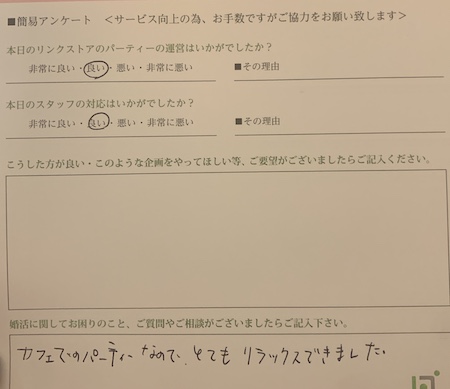 ■簡易アンケート <サービス向上の為、お手数ですがご協力をお願い致します>
本日のリンクストアのパーティーの運営はいかがでしたか?
非常に良い・良い・悪い・非常に悪い ■その理由
本日のスタッフの対応はいかがでしたか?
非常に良い・良い・悪い・非常に悪い ■その理由
こうした方が良い・このような企画をやってほしい等、ご要望がございましたらご記入ください。
婚活に関してお困りのこと、ご質問やご相談がございましたらご記入下さい。
カフェでのパーティーなので、とても リラックスできました。